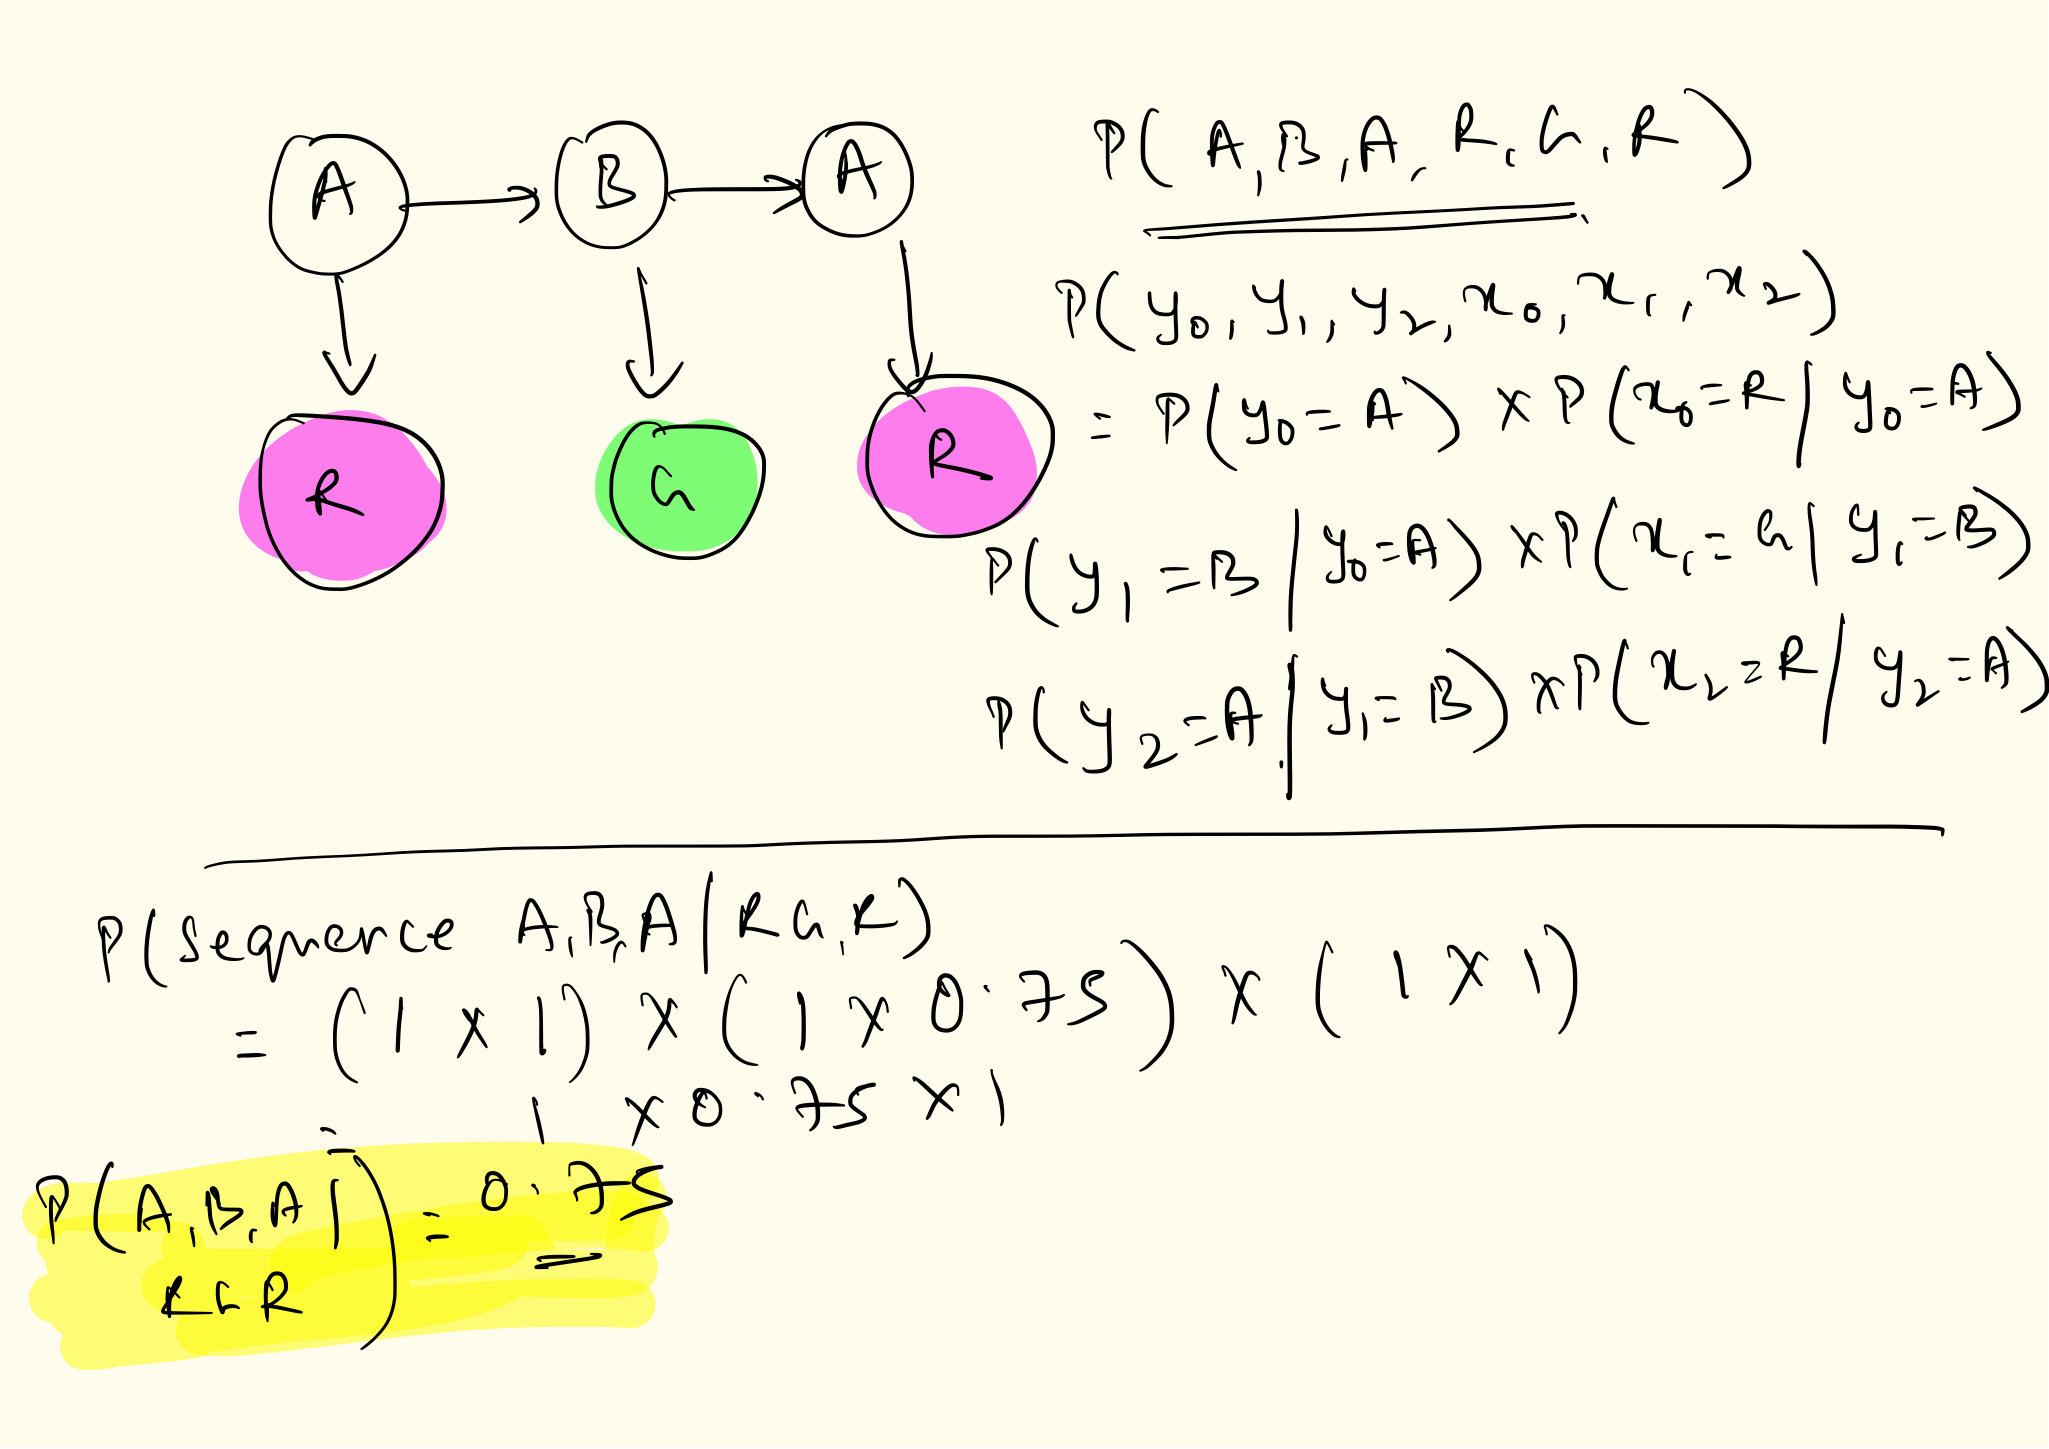 A B A
R G R
P(A,B,A,R,G,R)
P(y₀,y₁,y₂,x₀,x₁,x₂)
= P(y₀=A) x P(x₀=R/y₀=A)
P(y₁=B/y₀=A) x P(x₁=G|y₁=B)
P(y₂=A/y₁=B) x P(x₂=R/y₂=A)
P(Sequence A,B,A/RG,R)
= (1 x 1) x (1 x 0.75) x (1 x 1)
= 1 x 0.75 x 1
P(A,B,A| = 0.75
RGR)